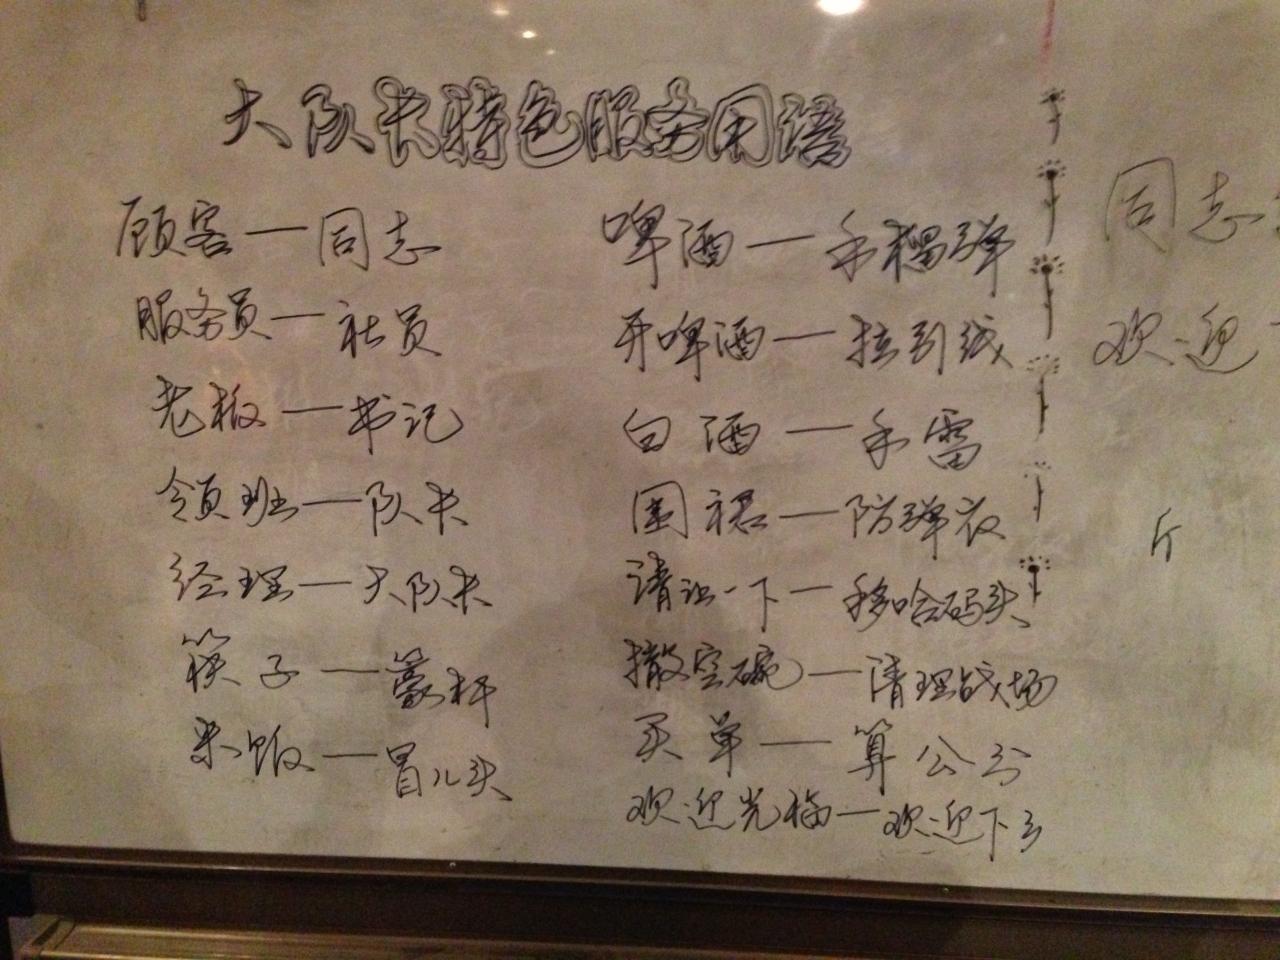 大队长特色服务用语
顾客—同志
服务员—社员
老板—书记
领班—队长
经理—大队长
筷子—篙杆
米饭—冒儿头
啤酒—手榴弹
开啤酒—拉引线
白酒—手雷
围裙—防弹衣
请让一下—移哈码头
撤空碗—清理战场
买单—算公分
欢迎光临—欢迎下乡
同志
欢迎
斤